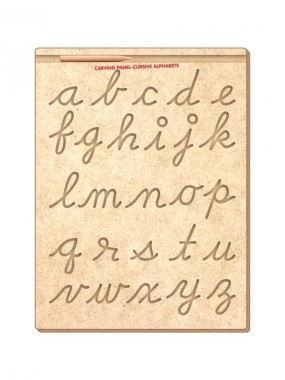 CARVING PANEL-CURSIVE ALPHABETS
a b c d e
f g h i j k
l m n o p
q r s t u
v w x y z